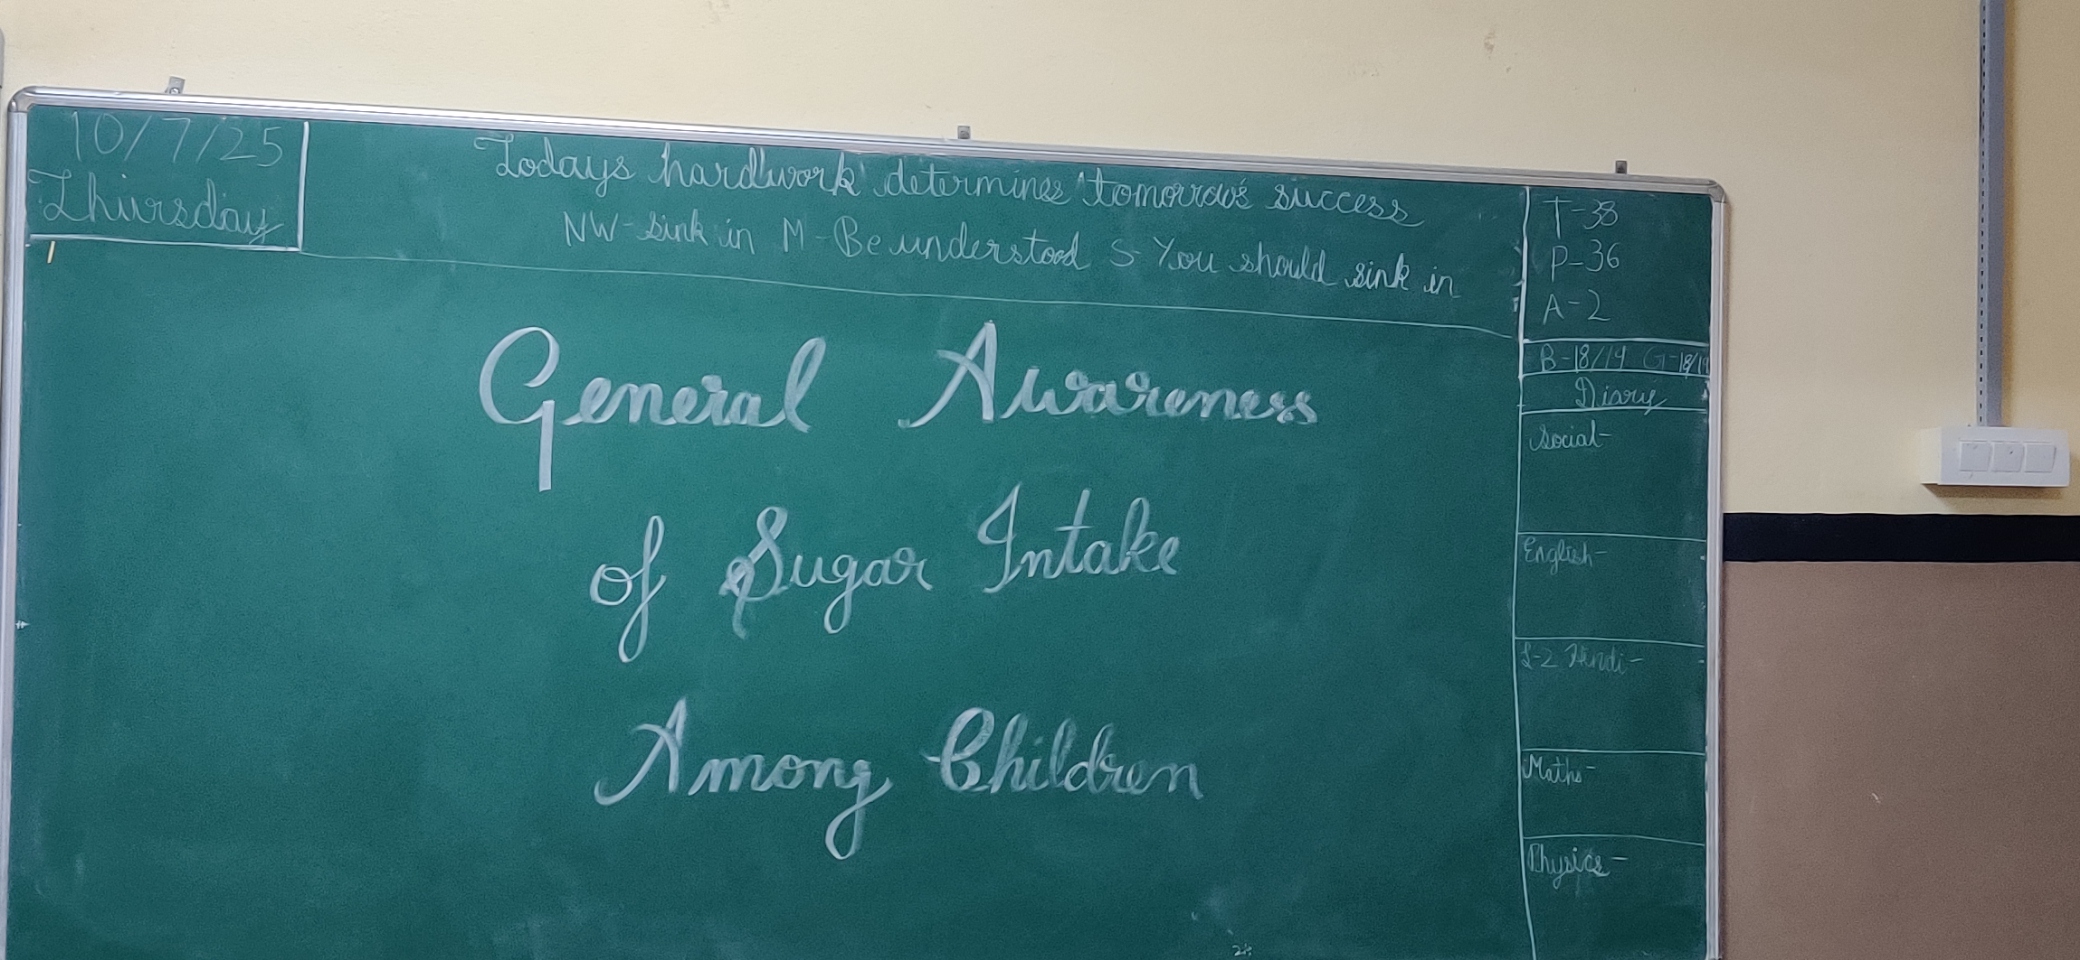 10/7/25
Thursday
Todays hardwork determines tomorrow's success
NW-sink in M-Be understood S-You should sink in
T-38
P-36
A-2
B-18/19 G-18/19
Diary
Social-
English-
L-2 Hindi-
Maths-
Physics-
General Awareness
of Sugar Intake
Among Children